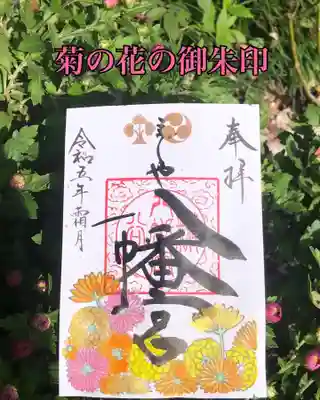 菊の花の御朱印
奉拝
八幡宮
令和五年霜月